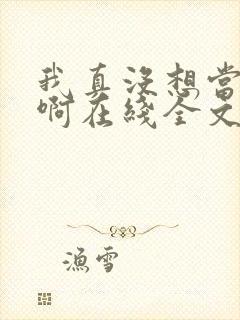 我真沒想當
啊在綫全文
漁雪